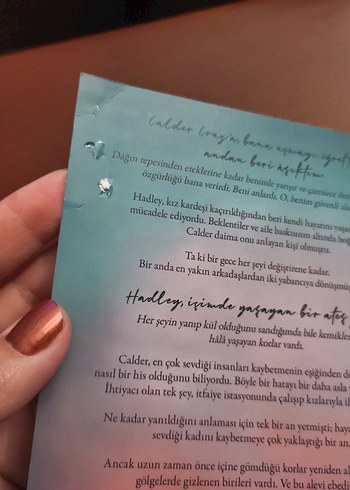 Calder Cruz'a, bana uçmayı
andan beri âşıktım.
Dağın tepesinden eteklerine kadar benimle yarışır ve
özgürlüğü bana verirdi. Beni anlardı. O, benim güvenli
Hadley, kız kardeşi kaçırıldığından beri kendi hayatını
mücadele ediyordu. Beklentiler ve aile baskısının altında
Calder daima onu anlayan kişi olmuştu.
Ta ki bir gece her şeyi değiştirene kadar.
Bir anda en yakın arkadaşlardan iki yabancıya
Hadley, içimde yaşayan bir ateş
Her şeyin yanıp kül olduğunu sandığımda bile
hâlâ yaşayan korlar vardı.
Calder, en çok sevdiği insanları kaybetmenin eşiğinden
nasıl bir his olduğunu biliyordu. Böyle bir hatayı bir daha asla
İhtiyacı olan tek şey, itfaiye istasyonunda çalışıp kızlarıyla
Ne kadar yanıldığını anlaması için tek bir an yetmişti;
sevdiği kadını kaybetmeye çok yaklaştığı bir an.
Ancak uzun zaman önce içine gömdüğü korlar yeniden
gölgelerde gizlenen birileri vardı. Ve bu alevi